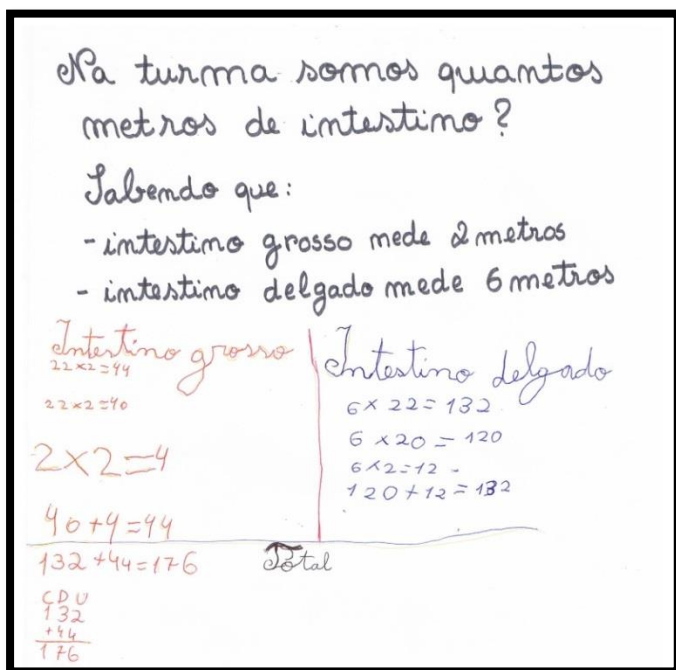 Na turma somos quantos
metros de intestino?
Sabendo que:
- intestino grosso mede 2 metros
- intestino delgado mede 6 metros
Intestino grosso
22x2=44
22x2=40
2x2=4
40+4=44
Intestino delgado
6x22=132
6x20=120
6x2=12-
120+12=132
132+44=176
Total
CDU
132
+44
176